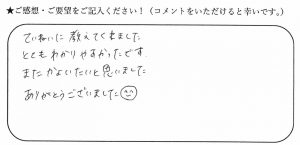 ★ご感想・ご要望をご記入ください！（コメントをいただけると幸いです。）
ていねいに教えてくれました
とてもわかりやすかったです
またかよいたいと思いました
ありがとうございました